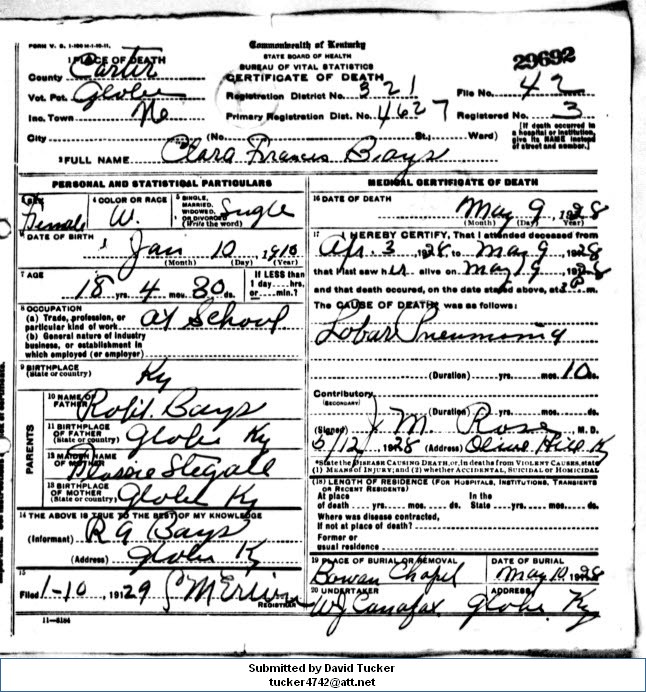 FORM V. S. 1-100 M-1-10-11.
Commonwealth of Kentucky
STATE BOARD OF HEALTH
BUREAU OF VITAL STATISTICS
CERTIFICATE OF DEATH
29692
1 PLACE OF DEATH
County Carter
Vot. Pct. Globe
Registration District No. 321
File No. 42
Inc. Town No
Primary Registration Dist. No. 4627
Registered No. 3
City
(No. St., Ward)
(If death occurred in a hospital or institution, give its NAME instead of street and number.)
2 FULL NAME Clara Francis Bays
PERSONAL AND STATISTICAL PARTICULARS
3 SEX Female
4 COLOR OR RACE W.
5 SINGLE, MARRIED, WIDOWED, OR DIVORCED (Write the word) Single
6 DATE OF BIRTH
Jan 10 1910
(Month) (Day) (Year)
7 AGE
18 yrs. 4 mos. 30 ds.
If LESS than 1 day....hrs. or....min.?
8 OCCUPATION
(a) Trade, profession, or particular kind of work At School
(b) General nature of industry business, or establishment in which employed (or employer)
9 BIRTHPLACE (State or country) Ky
PARENTS
10 NAME OF FATHER Robt. Bays
11 BIRTHPLACE OF FATHER (State or country) Globe Ky
12 MAIDEN NAME OF MOTHER Stegall
13 BIRTHPLACE OF MOTHER (State or country) Globe Ky
14 THE ABOVE IS TRUE TO THE BEST OF MY KNOWLEDGE
(Informant) R G Bays
(Address) Globe Ky
15
Filed 1-10, 1929
REGISTRAR
11-5184
MEDICAL CERTIFICATE OF DEATH
16 DATE OF DEATH
May 9, 1928
(Month) (Day) (Year)
17 I HEREBY CERTIFY, That I attended deceased from
Apr. 3 1928 to May 9 1928
that I last saw her alive on May 9 1928
and that death occurred, on the date stated above, at 3 P m.
The CAUSE OF DEATH was as follows:
Lobar Pneumonia
(Duration) yrs. mos. 10 ds.
Contributory
(SECONDARY)
(Duration) yrs. mos. ds.
(Signed) J M Rose, M. D.
5/12, 1928 (Address) Olive Hill Ky
*State the DISEASE CAUSING DEATH, or, in death from VIOLENT CAUSES, state
(1) MEANS OF INJURY; and (2) whether ACCIDENTAL, SUICIDAL or HOMICIDAL
(18) LENGTH OF RESIDENCE (FOR HOSPITALS, INSTITUTIONS, TRANSIENTS OR RECENT RESIDENTS)
At place of death yrs. mos. ds.
In the State yrs. mos. ds.
Where was disease contracted,
If not at place of death?
Former or usual residence
19 PLACE OF BURIAL OR REMOVAL
Bowan Chapel
DATE OF BURIAL
May 10, 1928
20 UNDERTAKER
WJ Canafax
ADDRESS
Globe Ky
Submitted by David Tucker
tucker4742@att.net